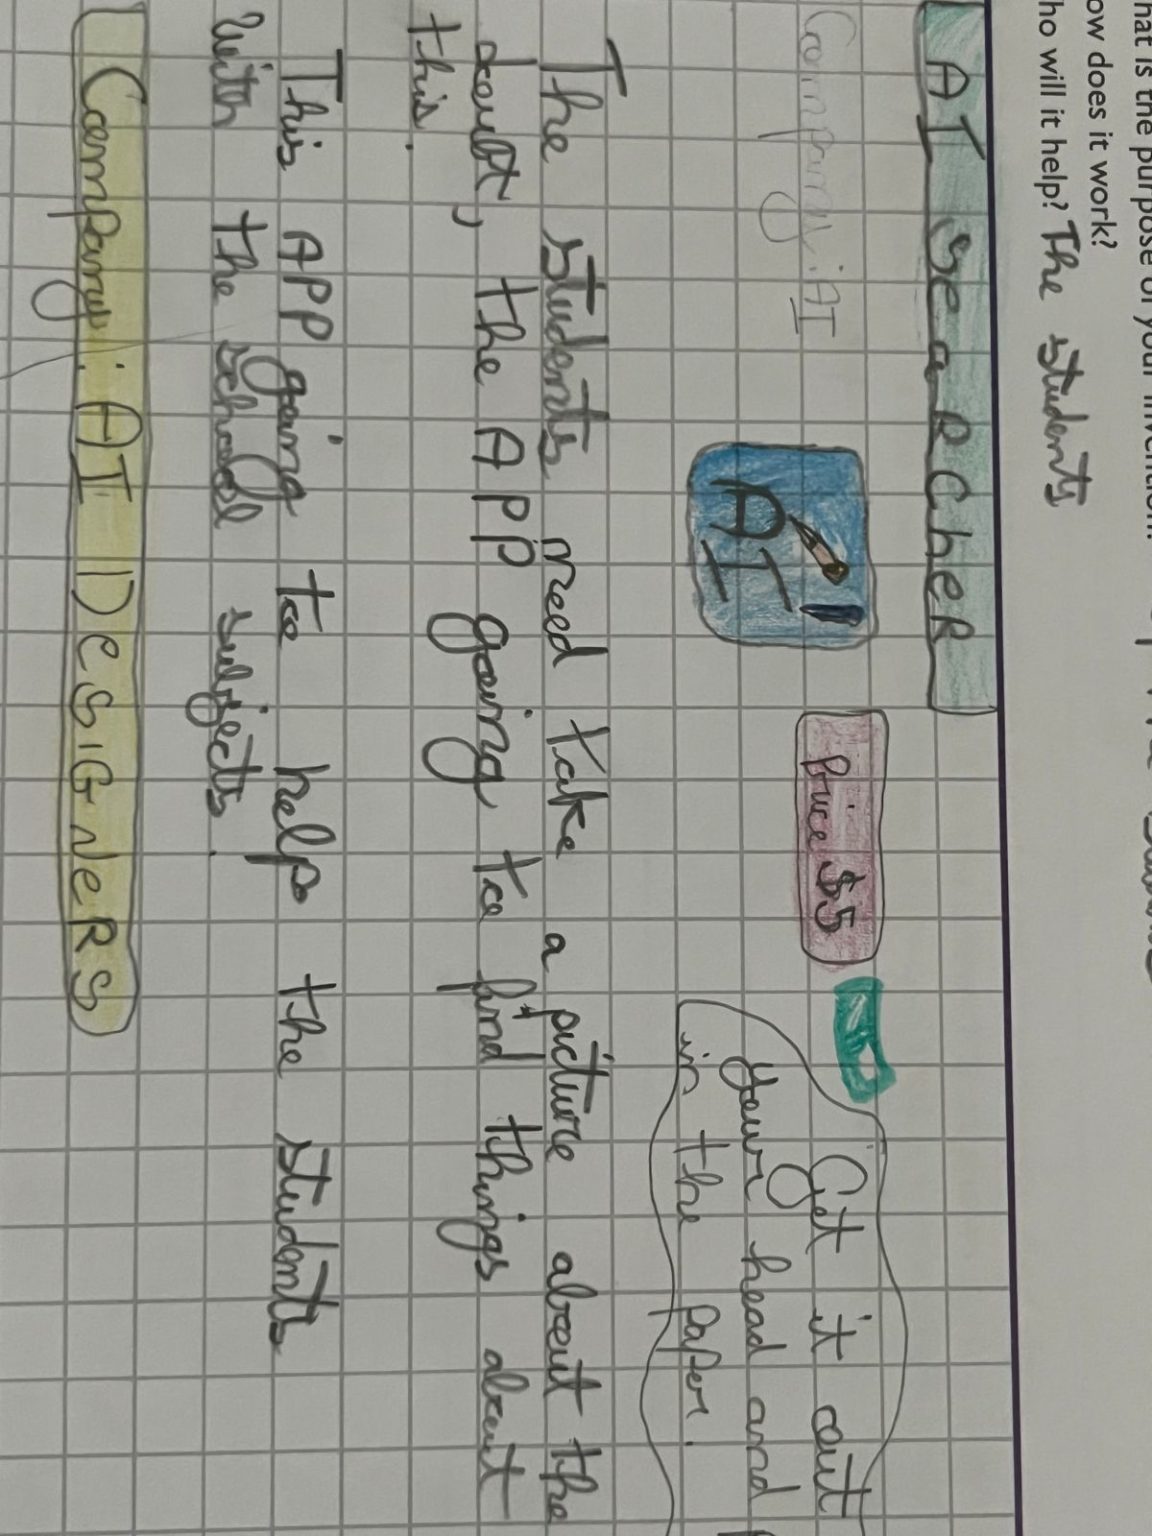 hat is the purpose of your invention?
ow does it work?
ho will it help? The students
AI SeaRCheR
Company: AI
AI
Price $5
Get it out
your head and
in the paper.
The students need take a picture about the
doubt, the APP going to find things about
this.
This APP going to help the students
with the school subjects.
Company: AI DesiGNeRS